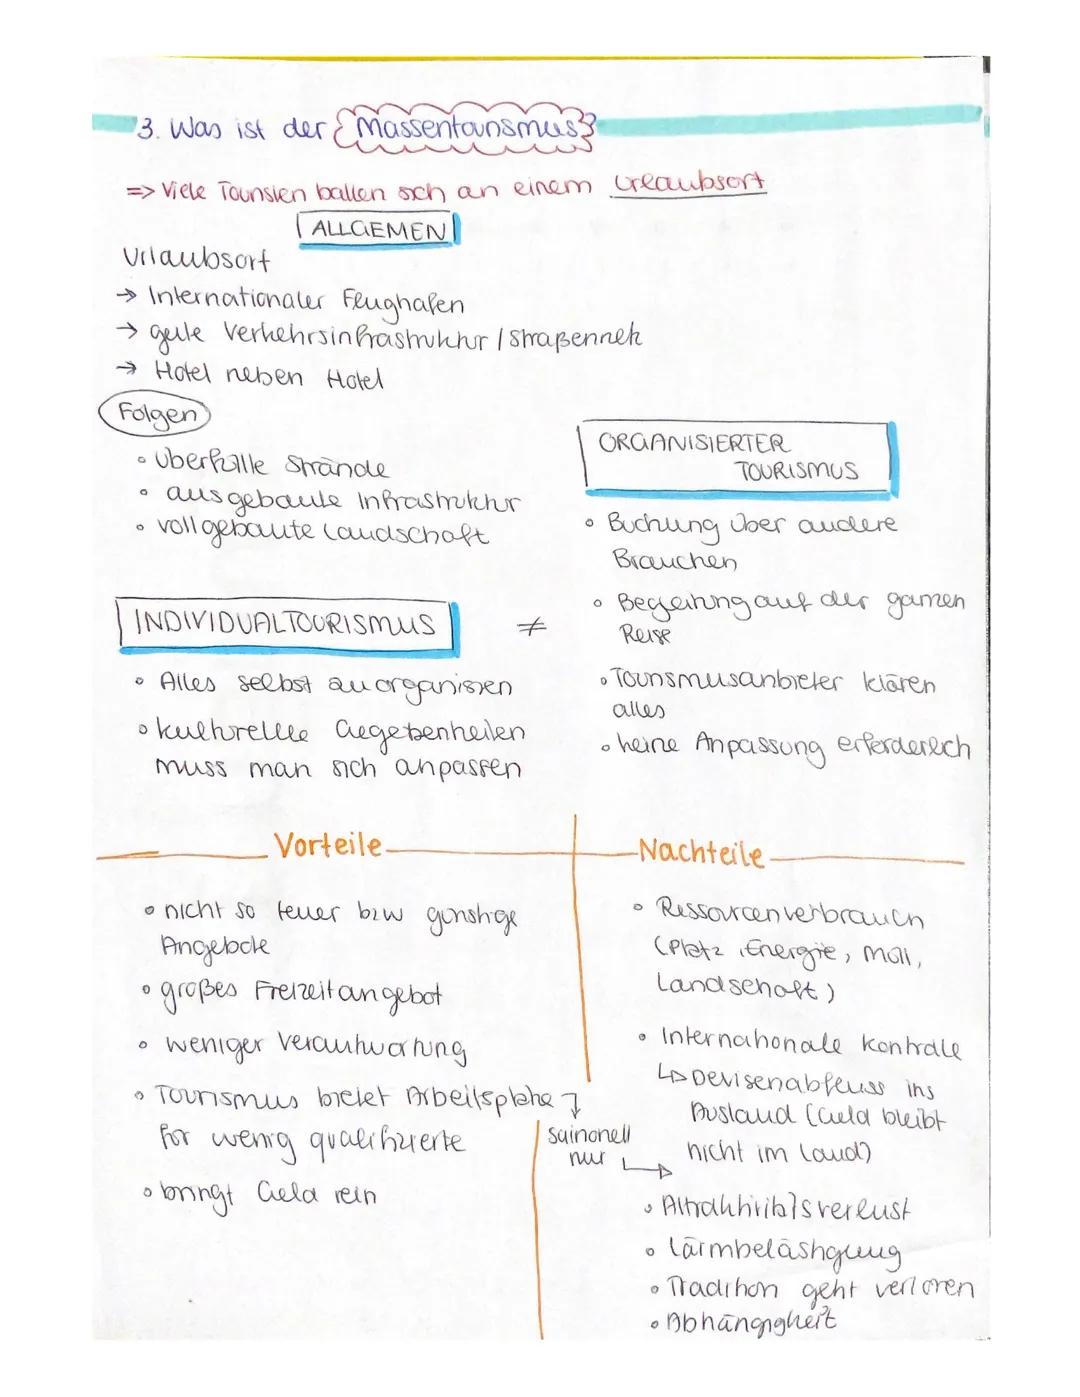 3. Was ist der Massentourismus?
=> Viele Touristen ballen sich an einem Urlaubsort
ALLGEMEN
Urlaubsort
→ Internationaler Flughafen
→ gute Verkehrsinfrastruktur / Straßennetz
→ Hotel neben Hotel
Folgen
• überfüllte Strände
• ausgebaute Infrastruktur
• vollgebaute Landschaft
ORGANISIERTER
TOURISMUS
• Buchung über andere
Branchen
• Begleitung auf der ganzen
Reise
• Tourismusanbieter klären
alles
• keine Anpassung erforderlich
INDIVIDUALTOURISMUS ≠
• Alles selbst zu organisieren
• kulturelle Gegebenheiten
muss man sich anpassen
Vorteile
• nicht so teuer bzw günstige
Angebote
• großes Freizeitangebot
• weniger Verantwortung
• Tourismus bietet Arbeitsplätze
für wenig qualifizierte
• bringt Geld rein
saisonell
nur
Nachteile
• Ressourcenverbrauch
(Platz, Energie, Müll,
Landschaft)
• Internationale Kontrolle
↳ Devisenabfluss ins
Ausland (Geld bleibt
nicht im Land)
• Attraktivitätsverlust
• Lärmbelästigung
• Tradition geht verloren
• Abhängigkeit